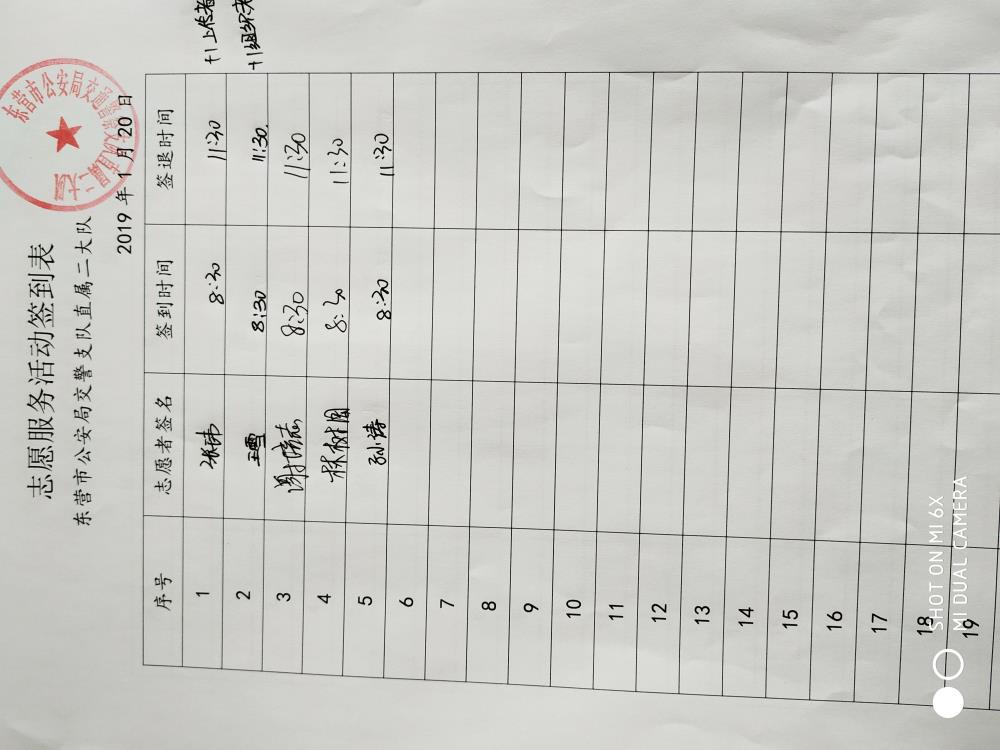 志愿服务活动签到表
东营市公安局交警支队直属二大队
2019 年 1 月 20 日
序号 志愿者签名 签到时间 签退时间
1 张玮 8:30 11:30 +1上传者
2 王雪 8:30 11:30. +1组织者
3 8:30 11:30
4 林树国 8:30 11:30
5 孙涛 8:30 11:30
6
7
8
9
10
11
12
13
14
15
16
17
18
19
东营市公安局交通警察支队直属二大队
SHOT ON MI 6X
MI DUAL CAMERA